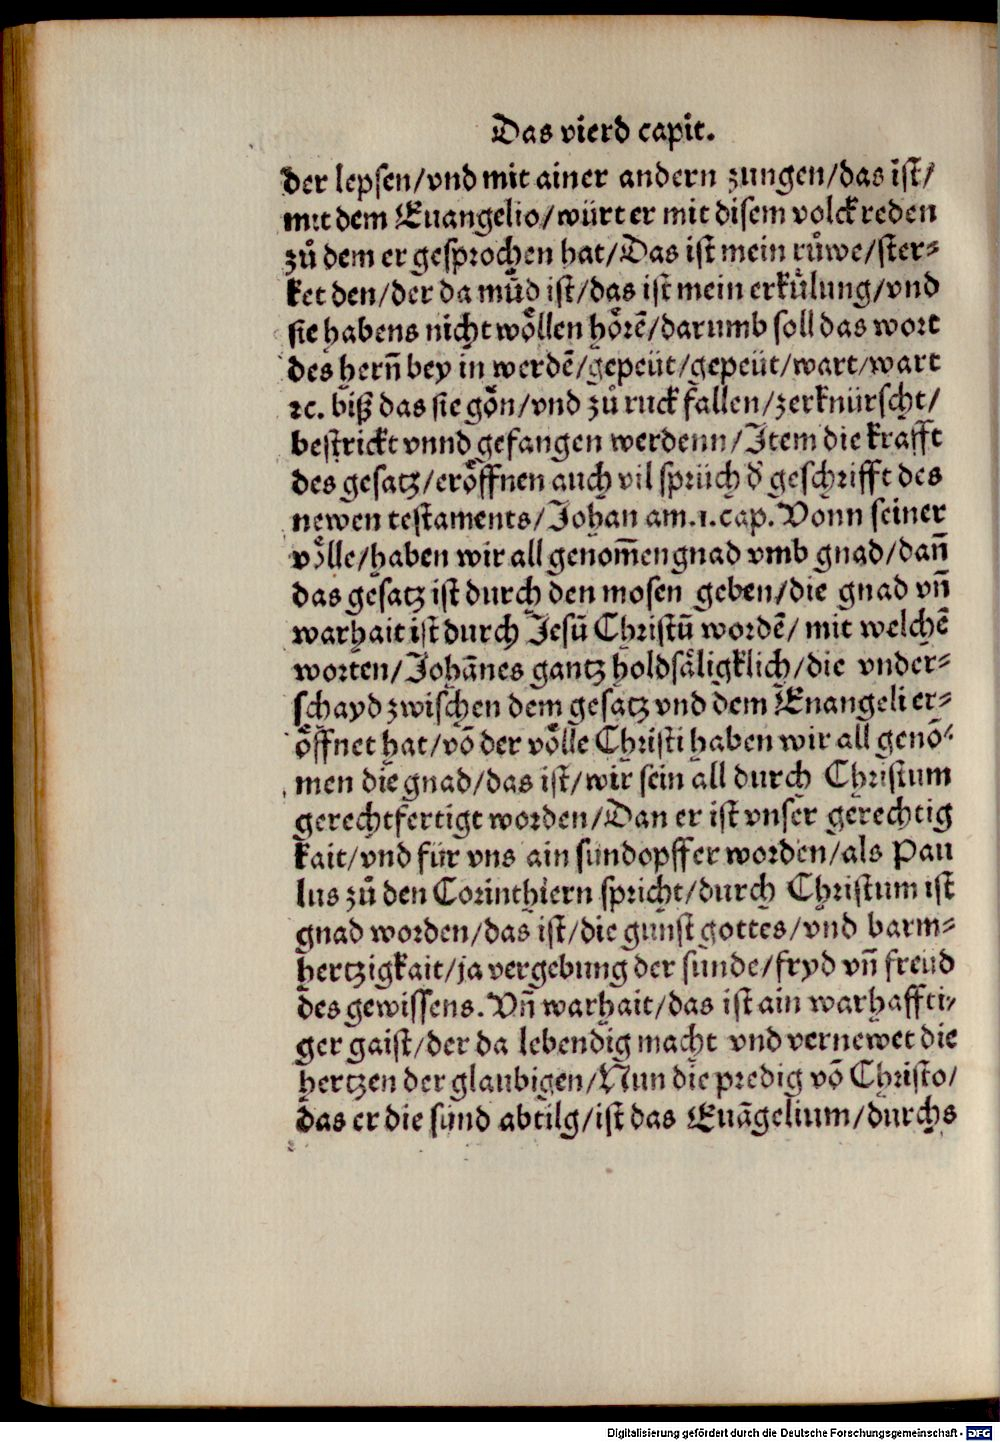 Das vierd capit.
der lepsen/vnd mit ainer andern zungen/das ist/
mit dem Euangelio/würt er mit disem volck reden
zů dem er gesprochen hat/Das ist mein růwe/ster⸗
ket den/der da můd ist/das ist mein erkůlung/vnd
sie habens nicht wöllen hörē/darumb soll das wort
des hern̄ bey in werdē/gepeüt/gepeüt/wart/wart
ꝛc. biß das sie gön/vnd zů ruck fallen/zerknürscht/
bestrickt vnnd gefangen werdenn/Item die krafft
des gesatz/eröffnen auch vil sprüch d̄ geschrifft des
newen testaments/Johan am.1.cap. Vonn seiner
völle/haben wir all genom̄en gnad vmb gnad/dan̄
das gesatz ist durch den mosen geben/die gnad vn̄
warhait ist durch Jesū Christū wordē/ mit welchē
worten/Johānes gantz holdsäligklich/die vnder⸗
schayd zwischen dem gesatz vnd dem Enangeli er⸗
öffnet hat/vō der völle Christi haben wir all genō⸗
men die gnad/das ist/wir sein all durch Christum
gerechtfertigt worden/Dan er ist vnser gerechtig
kait/vnd für vns ain sündopffer worden/als Pau
lus zů den Corinthiern spricht/durch Christum ist
gnad worden/das ist/die gunst gottes/vnd barm⸗
hertzigkait/ja vergebung der sunde/fryd vn̄ freüd
des gewissens. Vn̄ warhait/das ist ain warhaffti⸗
ger gaist/der da lebendig macht vnd vernewet die
hertzen der glaubigen/Nun die predig vō Christo/
das er die sünd abtilg/ist das Euāgelium/durchs
Digitalisierung gefördert durch die Deutsche Forschungsgemeinschaft - DFG